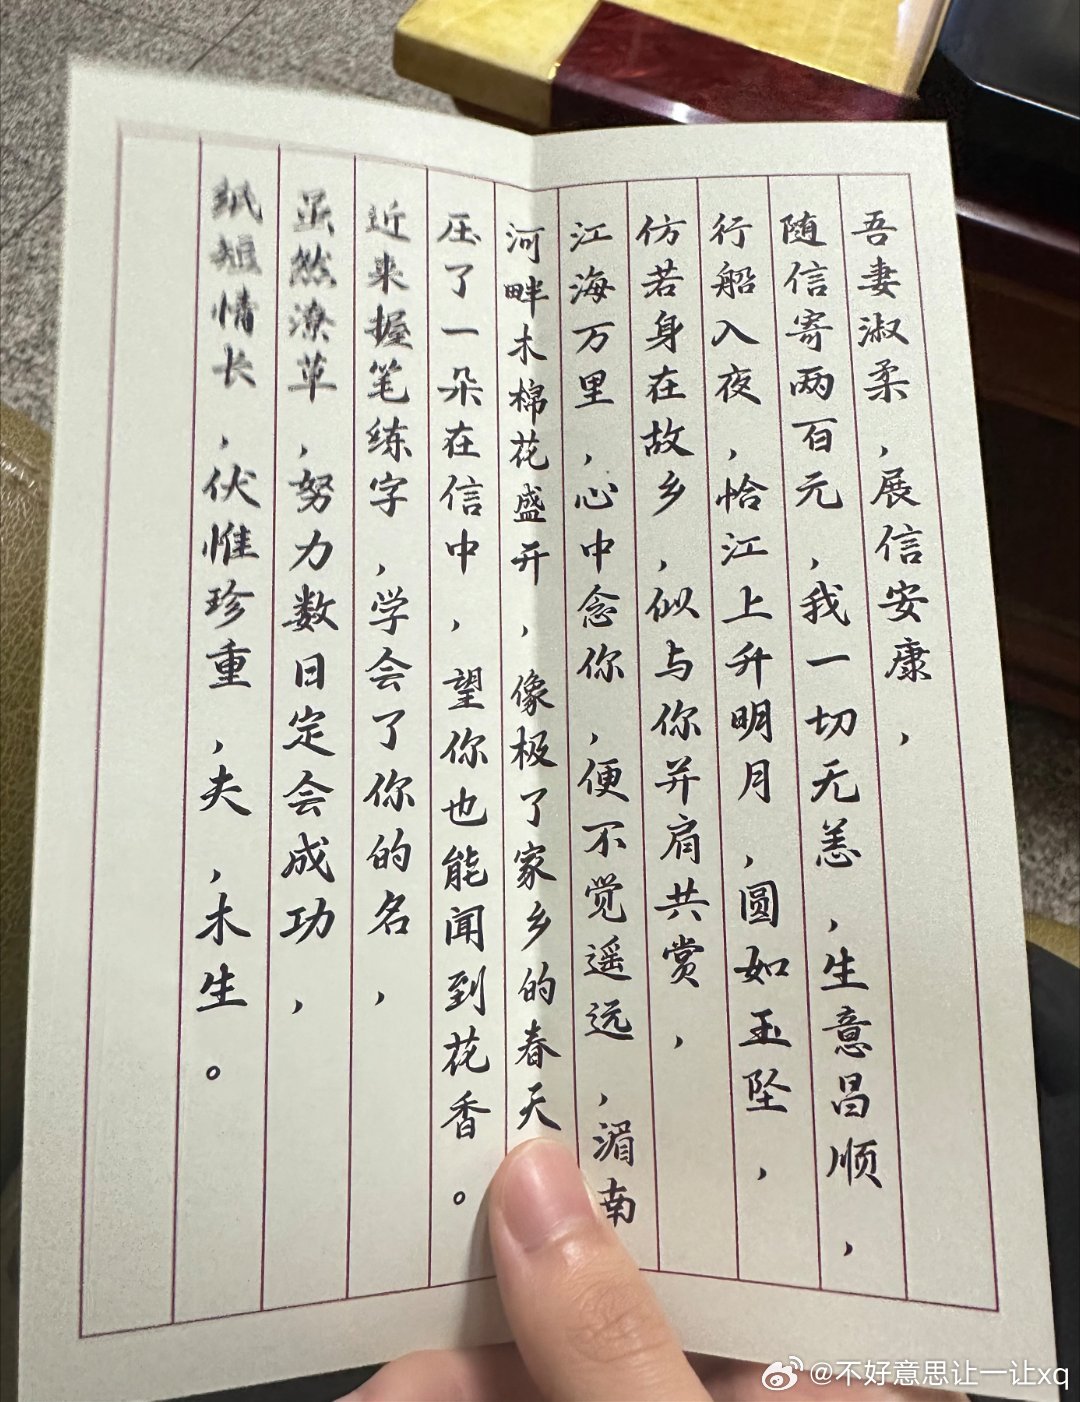 吾妻淑柔，展信安康，
随信寄两百元，我一切无恙，生意昌顺，
行船入夜，恰江上升明月，圆如玉坠，
仿若身在故乡，似与你并肩共赏，
江海万里，心中念你，便不觉遥远，湄南
河畔木棉花盛开，像极了家乡的春天
压了一朵在信中，望你也能闻到花香。
近来握笔练字，学会了你的名，
虽然潦草，努力数日定会成功，
纸短情长，伏惟珍重，夫，木生。
@不好意思让一让xq